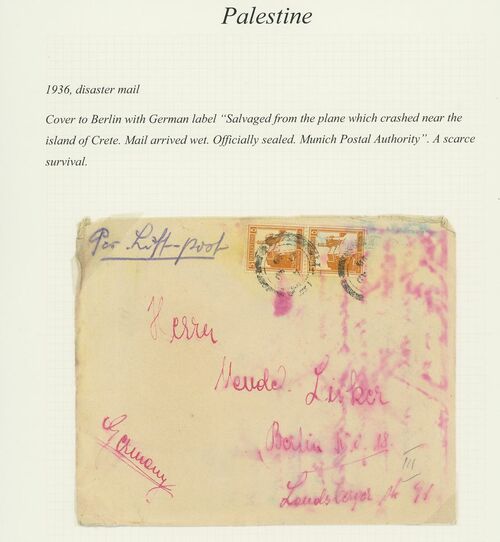 Palestine
1936, disaster mail
Cover to Berlin with German label “Salvaged from the plane which crashed near the
island of Crete. Mail arrived wet. Officially sealed. Munich Postal Authority”. A scarce
survival.
Per Luft-post
Herrn
Lisker
Berlin
Germany